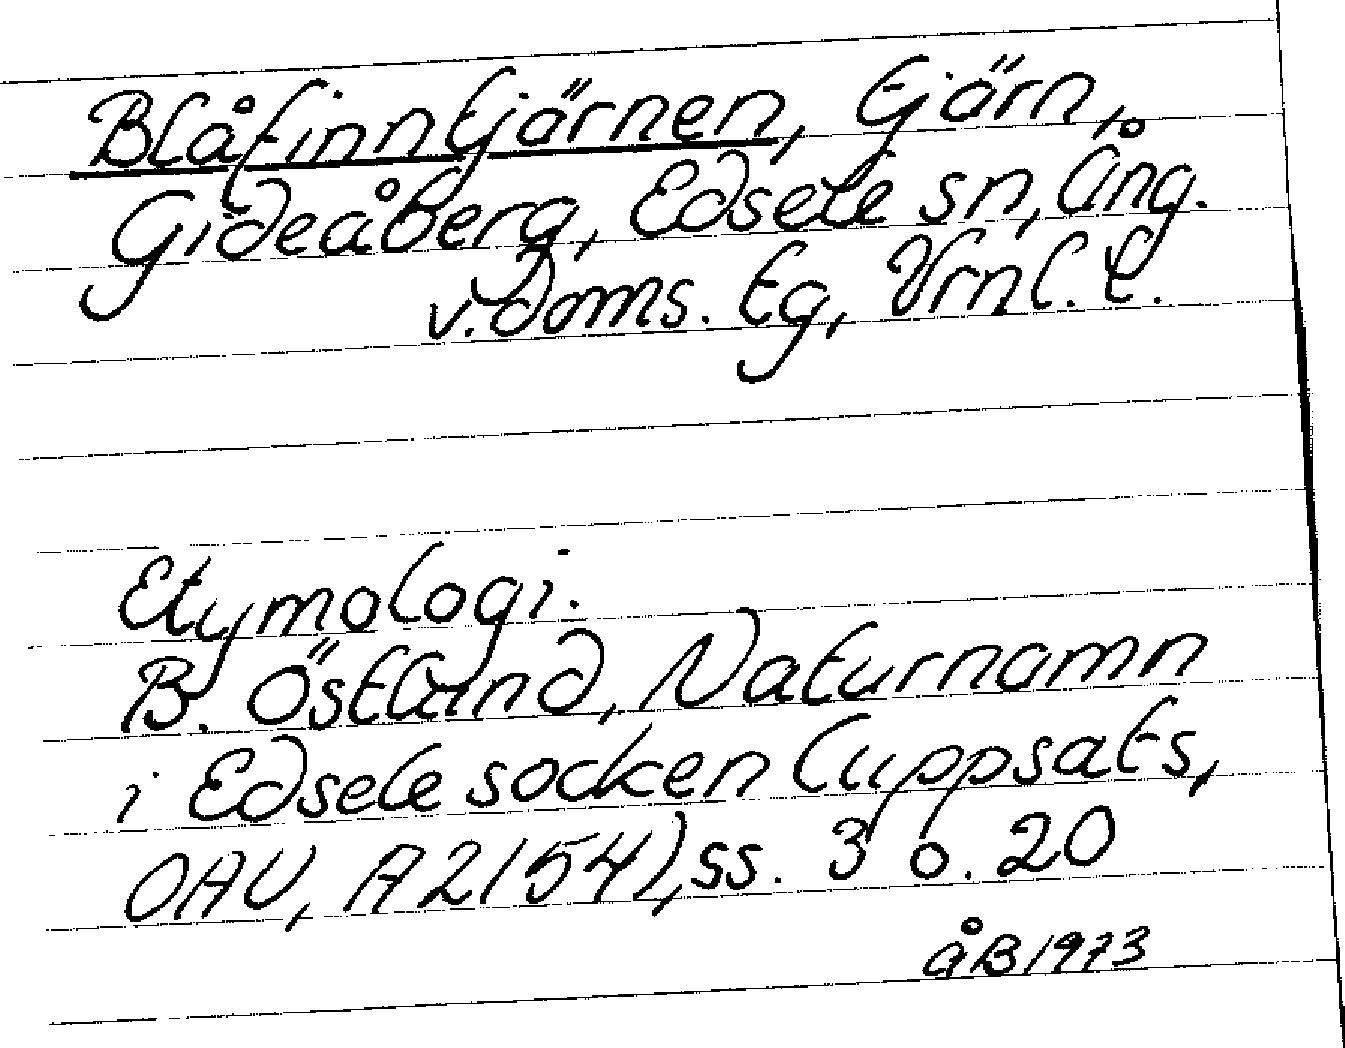 Blåfinntjärnen, tjärn,
Gideåberg, Edsele sn, Ång.
v. Doms. tg, Vrnl. l.
Etymologi.
B. Östlund, Naturnamn
i Edsele socken (uppsats,
OAU, A 2154), ss. 3 o. 20
ÅB 1973